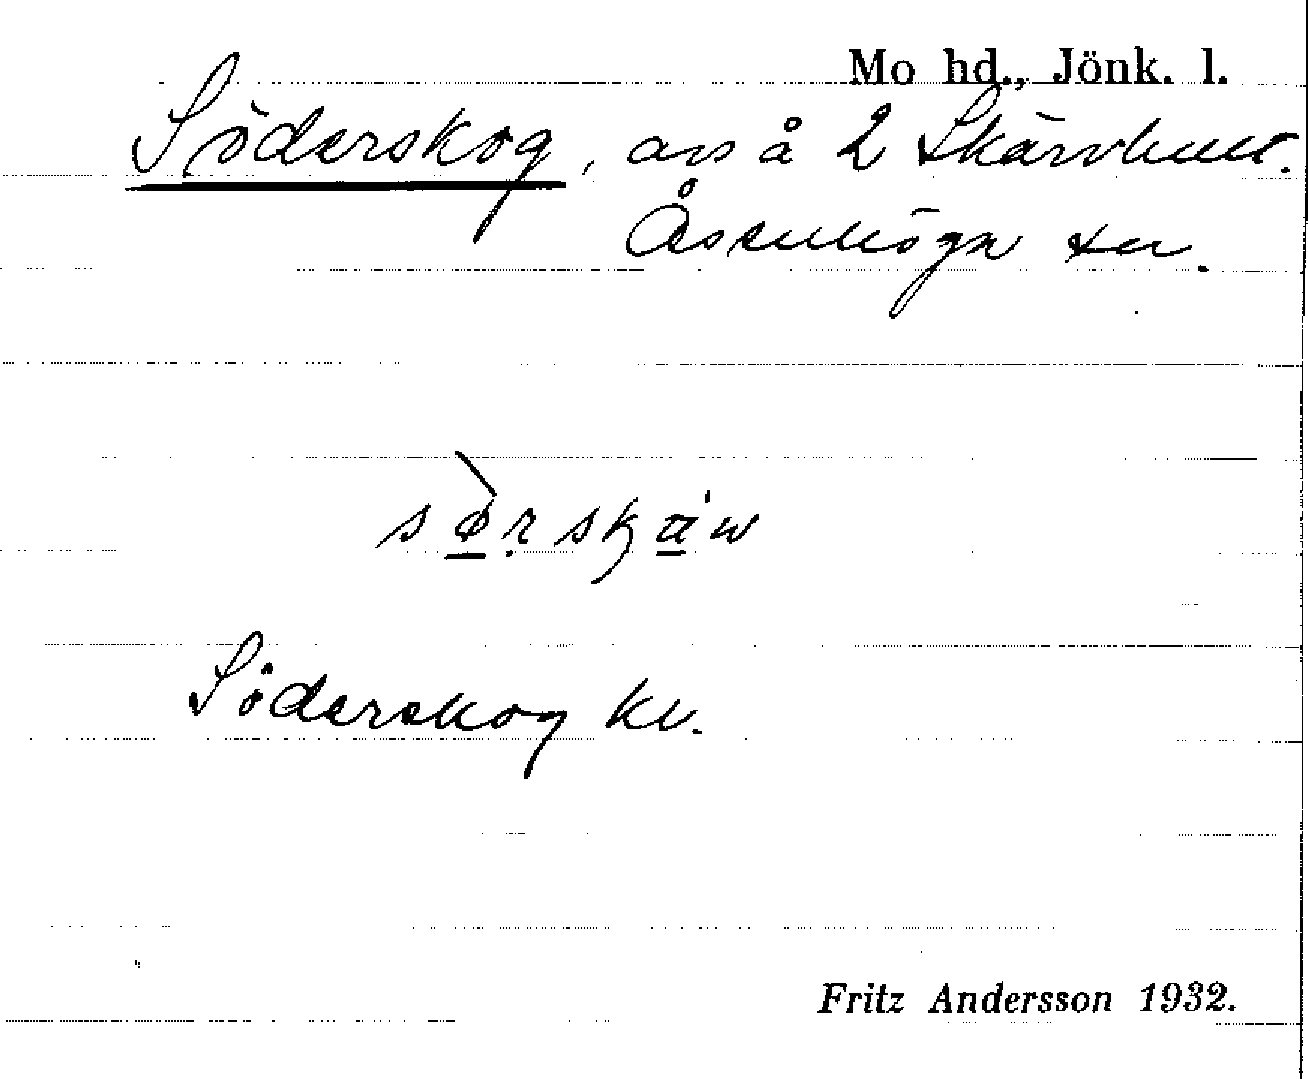 Mo hd., Jönk. l.
Söderskog, avs å 2 Skärvhult.
Åsenhöga sn.
Söderskog kv.
Fritz Andersson 1932.